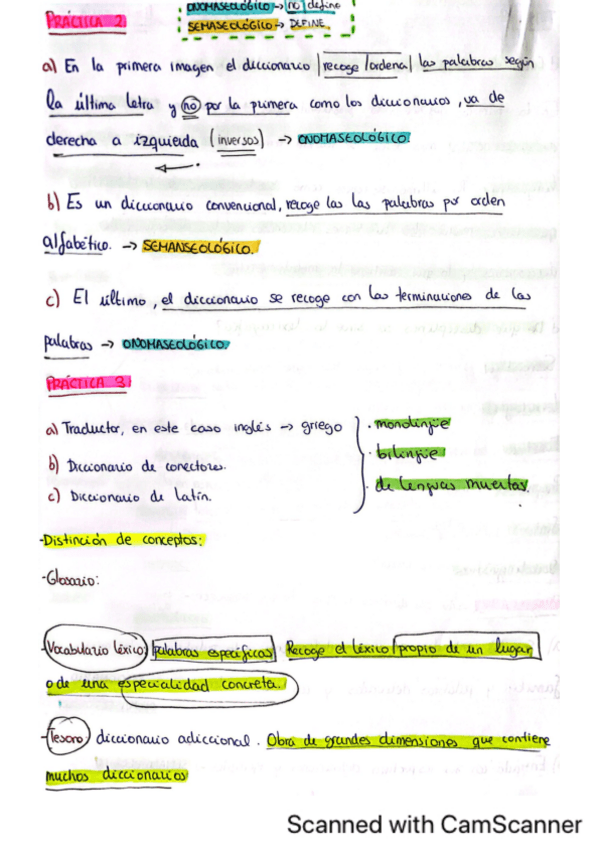 ONOMASEOLÓGICO → no define
PRÁCTICA 2
SEMASEOLÓGICO → DEFINE.
a) En la primera imagen el diccionario recoge/ordena las palabras según
la última letra y no por la primera como los diccionarios, va de
derecha a izquierda (inversos) → ONOMASEOLÓGICO.
b) Es un diccionario convencional, recoge las las palabras por orden
alfabético. → SEMANSEOLÓGICO.
c) El último, el diccionario se recoge con las terminaciones de las
palabras → ONOMASEOLÓGICO.
PRÁCTICA 3
a) Traductor, en este caso inglés → griego
· monolingüe
· bilingüe
b) Diccionario de conectores.
· de lenguas muertas.
c) Diccionario de latín.
-Distinción de conceptos:
-Glosario:
-Vocabulario léxico palabras específicas Recoge el léxico propio de un lugar
o de una especialidad concreta.
-Tesoro diccionario adiccional. Obra de grandes dimensiones que contiene
muchos diccionarios
Scanned with CamScanner